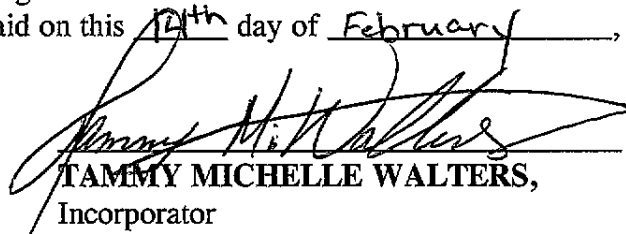 aid on this 14th day of February,
Tammy M. Walters
TAMMY MICHELLE WALTERS,
Incorporator